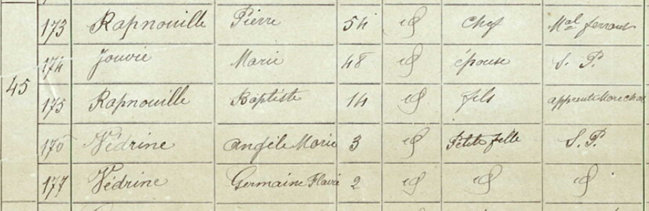 173 Rapnouille Pierre 54 d° chef Mal ferrant
174 Jouvie Marie 48 d° épouse S. P.
45
175 Rapnouille Baptiste 14 d° fils apprenti Maréchal
176 Védrine Angèle Marie 3 d° Petite fille S. P.
177 Védrine Germaine Flavie 2 d° d° d°